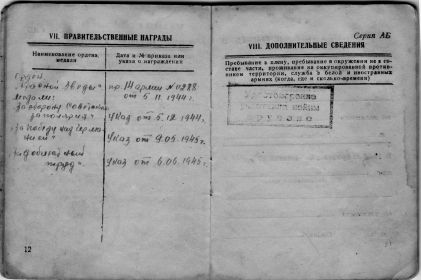 VII. ПРАВИТЕЛЬСТВЕННЫЕ НАГРАДЫ
Наименование ордена, медали
Дата и № приказа или указа о награждении
Орден
"Красной Звезды"
пр. 7 Армии № 0228
от 5.11.1944 г.
Медали:
За оборону Советского
заполярья"
Указ от 5.12.1944 г.
"За победу над Герма-
нией"
Указ от 9.05.1945 г.
За доблестный
труд"
Указ от 6.06.1945 г.
12
Серия АБ
VIII. ДОПОЛНИТЕЛЬНЫЕ СВЕДЕНИЯ
Пребывание в плену, пребывание в окружении не в со-
ставе части, проживание на оккупированной против-
ником территории, служба в белой и иностранных
армиях (когда, где и сколько времени)
Удостоверение
участника войны
вручено